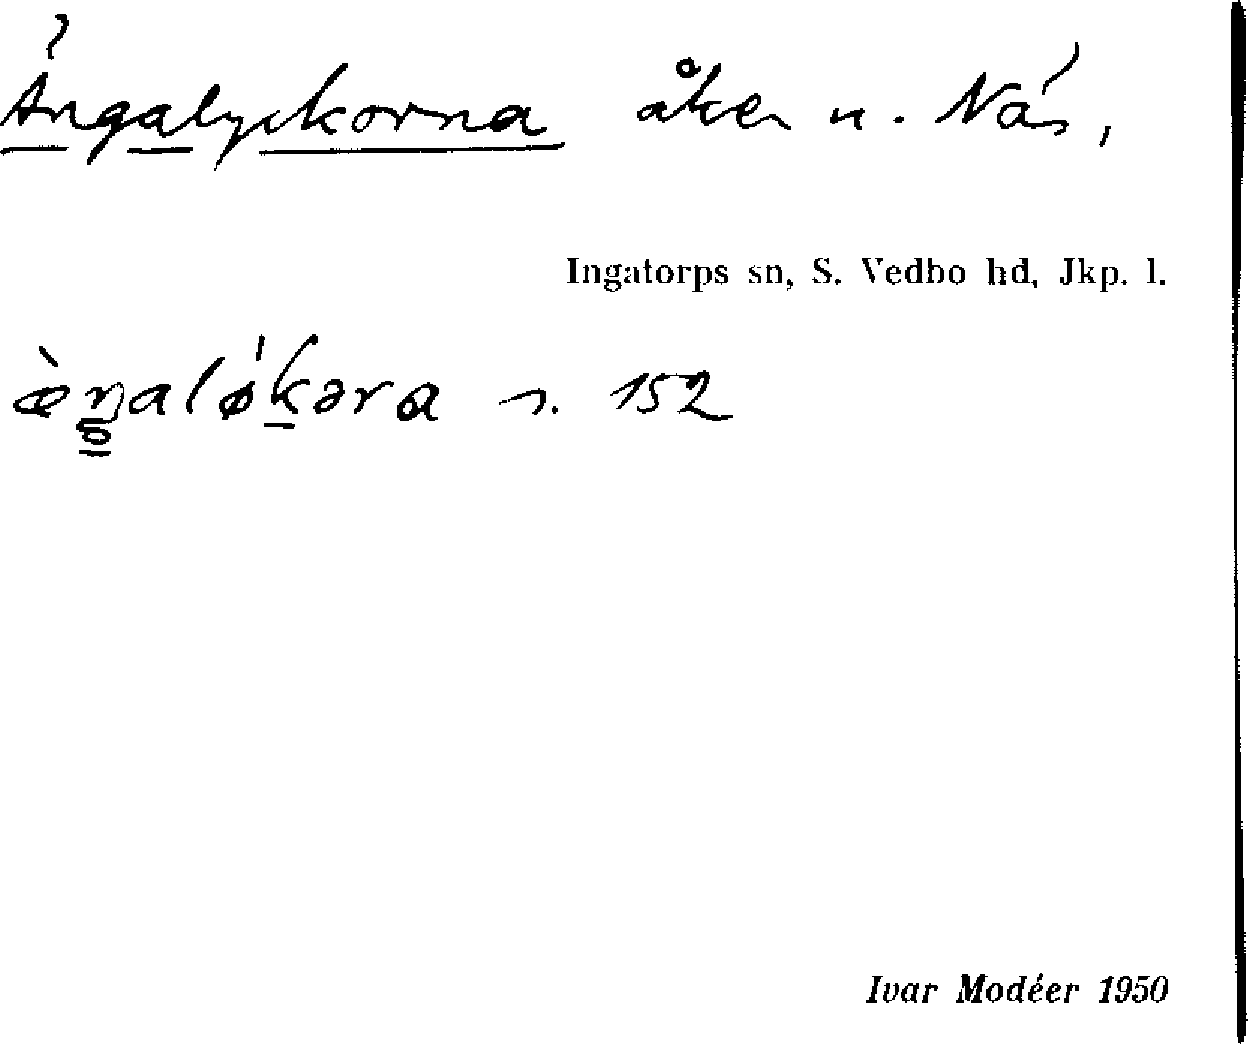 Ängalyckorna åker n. Näs,
Ingatorps sn, S. Vedbo hd, Jkp. l.
æ̀ŋaløkəra s. 152
Ivar Modéer 1950